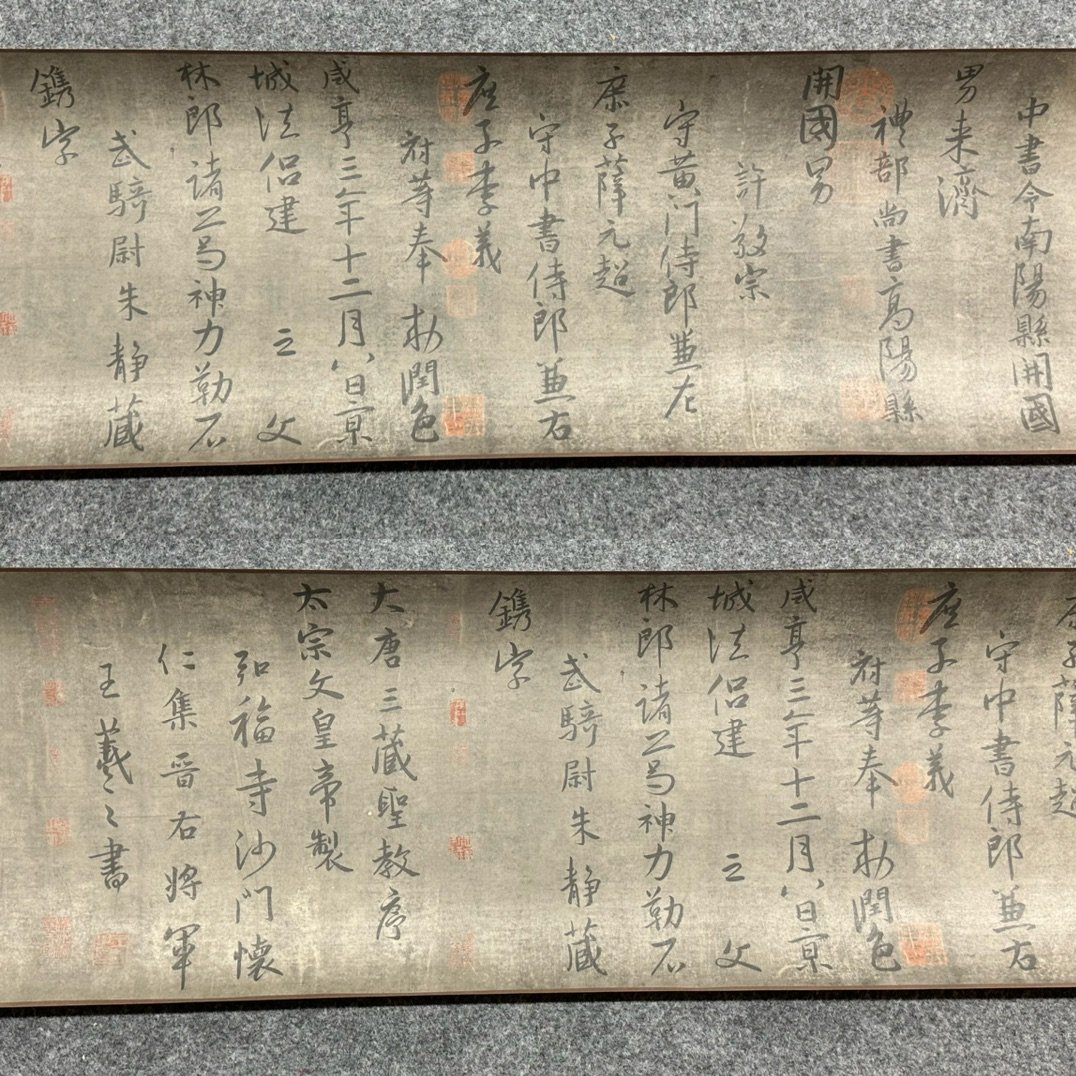 中書令南陽縣開國
男来濟
禮部尚書高陽縣
開國男
許敬宗
守黄门侍郎兼左
庶子薛元超
守中書侍郎兼右
庶子李義
府等奉 勑潤色
咸亨三年十二月八日京
城法侣建 立 文
林郎諸葛神力勒石
武騎尉朱静藏
鐫字
庶子薛元超
守中書侍郎兼右
庶子李義
府等奉 勑潤色
咸亨三年十二月八日京
城法侣建 立 文
林郎諸葛神力勒石
武騎尉朱静藏
鐫字
大唐三藏聖教序
太宗文皇帝製
弘福寺沙門懷
仁集晋右將軍
王羲之書